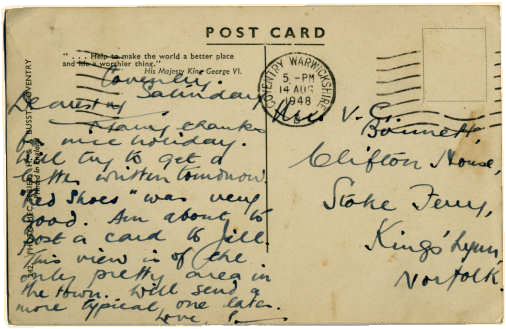 POST CARD
" . . . Help to make the world a better place
and life a worthier thing."
His Majesty King George VI.
Coventry.
Saturday
Dearest
Many thanks
for nice holiday.
Will try to get a
letter written tomorrow.
"Red Shoes" was very
good. Am about to
post a card to Jill.
This view is of the
only pretty area in
the town. Will send a
more typical one later.
Love,
COVENTRY WARWICKSHIRE
5 - PM
14 AUG
1948
Mrs V. C.
Bonnett,
Clifton House,
Stoke Ferry,
King's Lynn,
Norfolk.